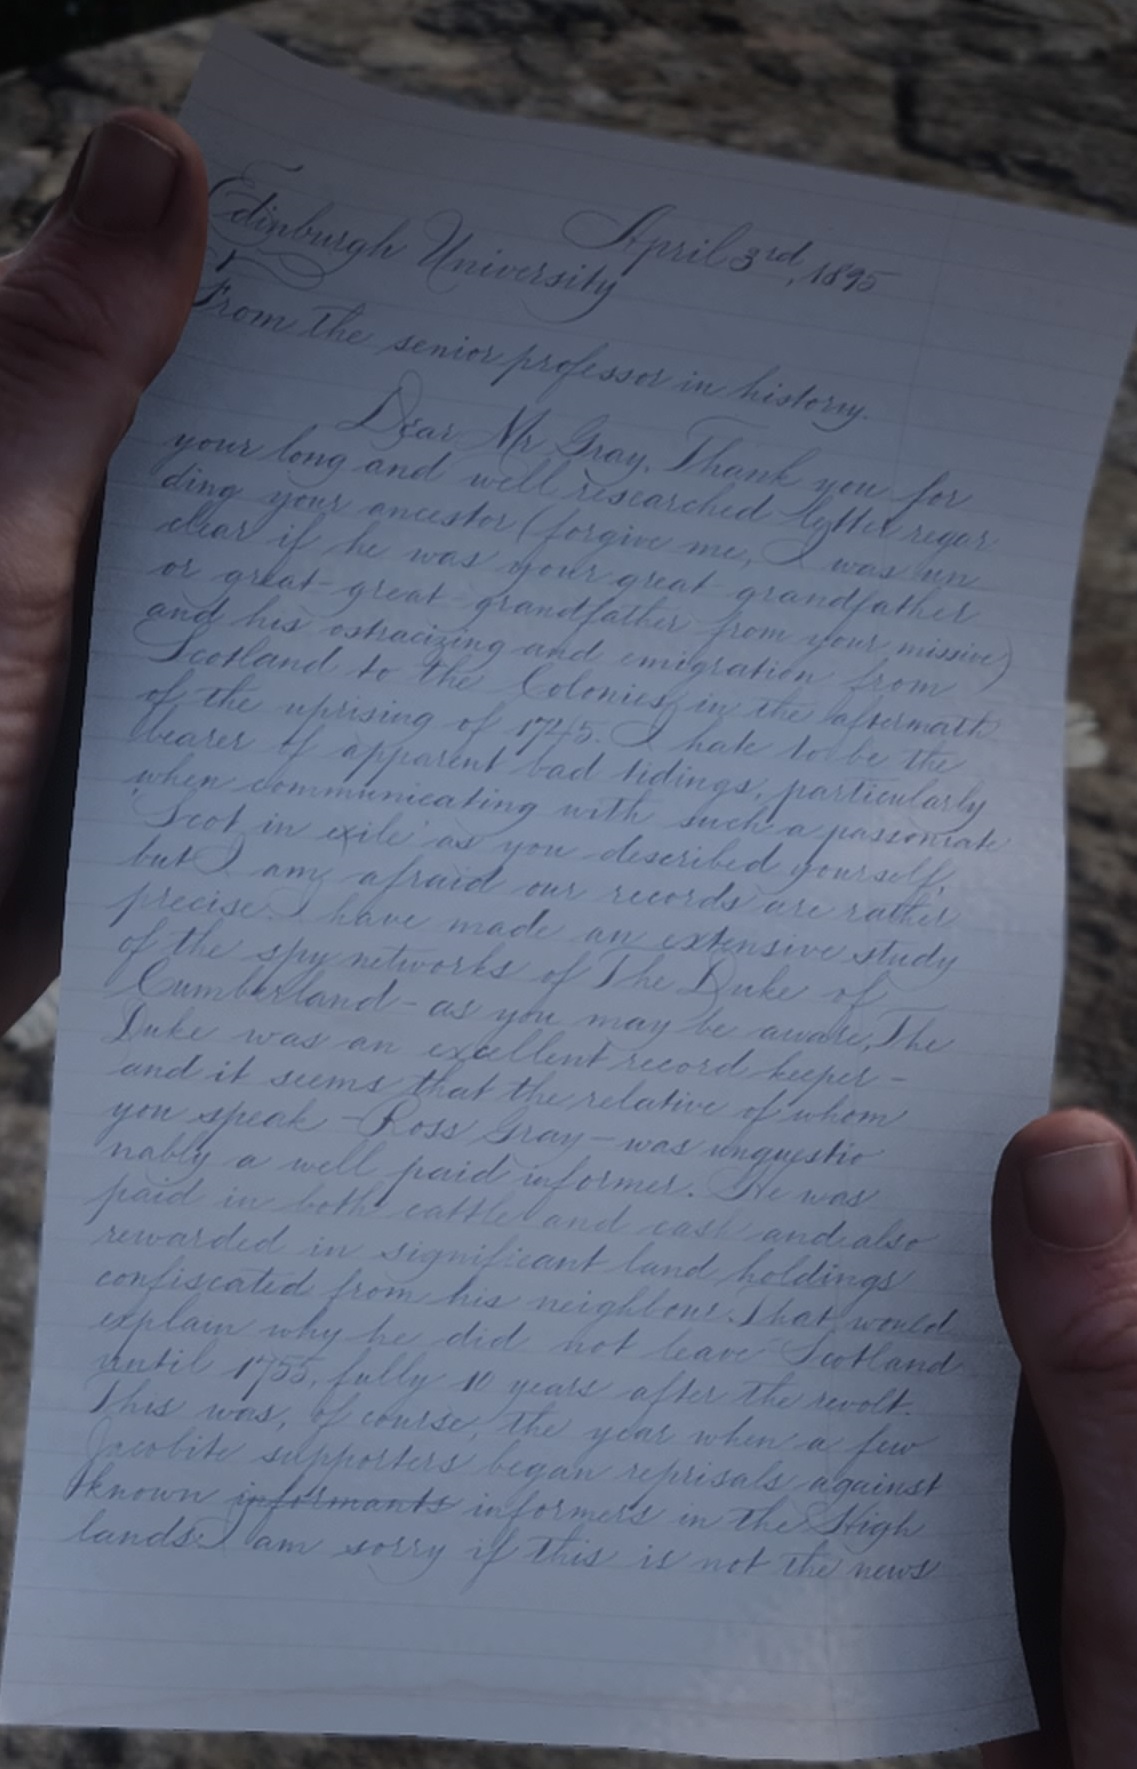 April 3rd, 1895
Edinburgh University
From the senior professor in history.
Dear Mr Gray, Thank you for
your long and well researched letter regar
ding your ancestor (forgive me, I was un
clear if he was your great grandfather
or great-great-grandfather from your missive)
and his ostracizing and emigration from
Scotland to the Colonies in the aftermath
of the uprising of 1745. I hate to be the
bearer of apparent bad tidings, particularly
when communicating with such a passionate
'Scot in exile' as you described yourself,
but I am afraid our records are rather
precise. I have made an extensive study
of the spy networks of The Duke of
Cumberland - as you may be aware, The
Duke was an excellent record keeper -
and it seems that the relative of whom
you speak - Ross Gray - was unquestio
nably a well paid informer. He was
paid in both cattle and cash and also
rewarded in significant land holdings
confiscated from his neighbour. That would
explain why he did not leave Scotland
until 1755, fully 10 years after the revolt.
This was, of course, the year when a few
Jacobite supporters began reprisals against
known informants informers in the High
lands. I am sorry if this is not the news